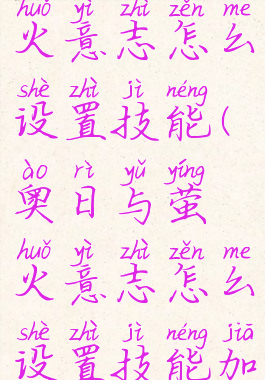 huǒ yì zhì zěn me
火意志怎么
shè zhì jì néng
设置技能(
ào rì yǔ yíng
奥日与萤
huǒ yì zhì zěn me
火意志怎么
shè zhì jì néng jiā
设置技能加